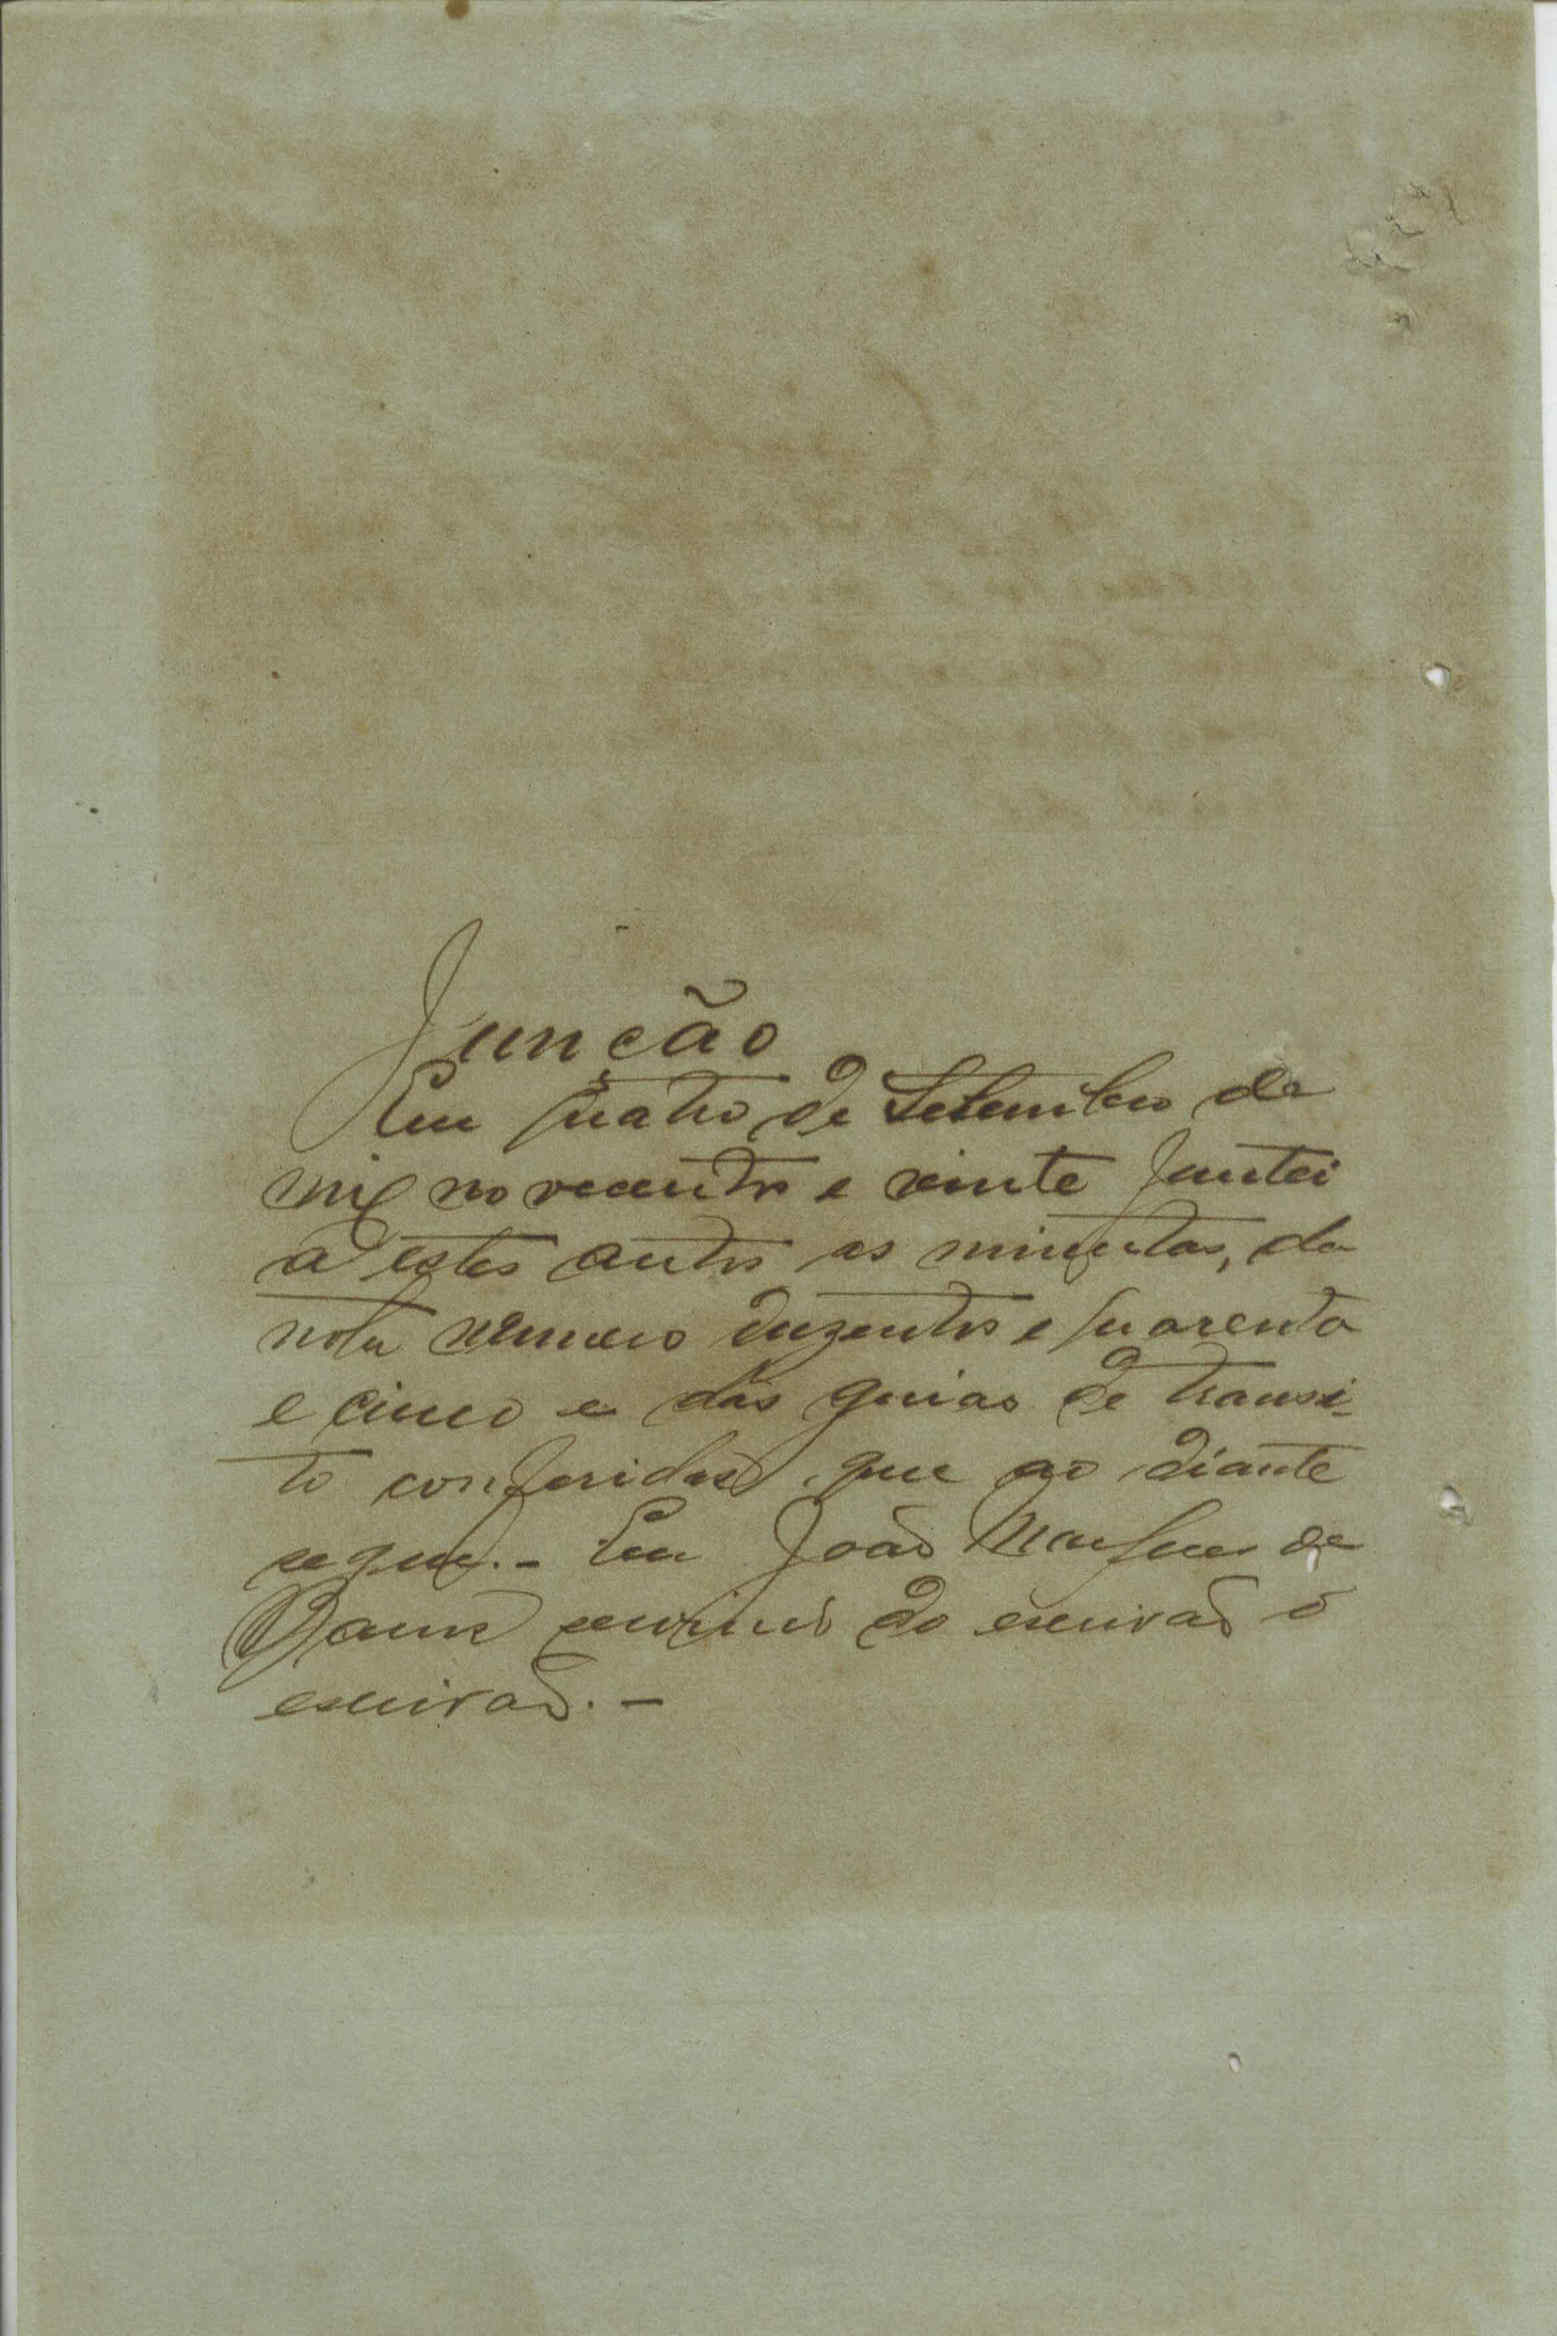 Junção
Em quatro de Setembro de
mil novecentos e vinte juntei
a estes autos as minutas, da
nota numero duzentos e quarenta
e cinco e das guias de transi-
to conferidas, que ao diante
segue. - Eu João Marques de
do escrivaõ o
escrivaõ. -